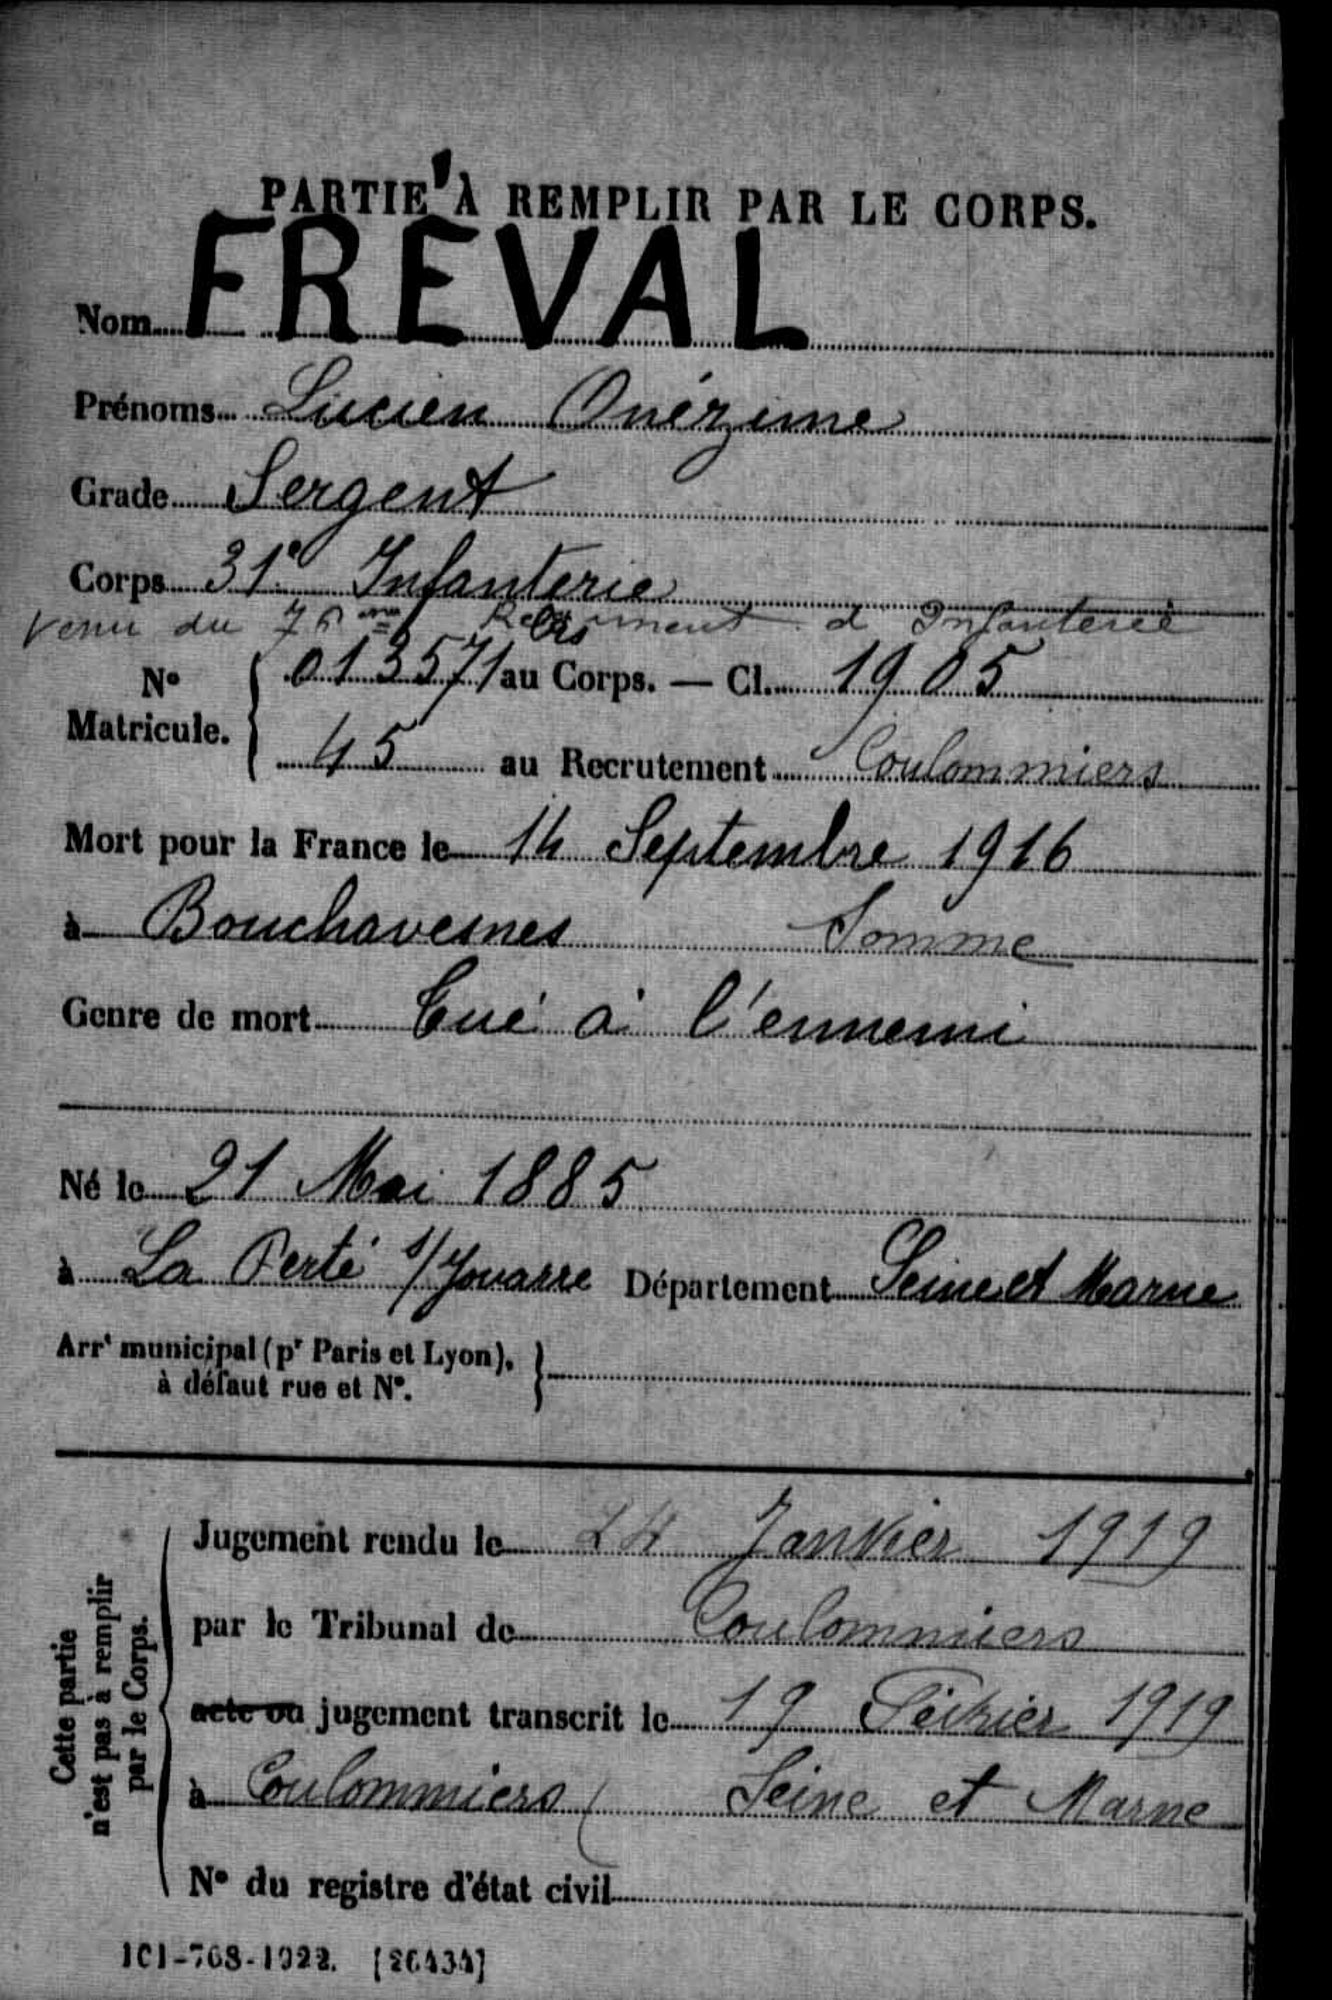 PARTIE À REMPLIR PAR LE CORPS.
Nom FRÉVAL
Prénoms Lucien Onézime
Grade Sergent
Corps 31e Infanterie
Venu du 76me Régiment d'Infanterie
No Matricule. { 013571 bis au Corps. — Cl. 1905
45 au Recrutement Coulommiers
Mort pour la France le 14 Septembre 1916
à Bouchavesnes Somme
Genre de mort Tué à l'ennemi
Né le 21 Mai 1885
à La Ferté s/Jouarre Département Seine et Marne
Arrt municipal (pr Paris et Lyon), à défaut rue et No. }
Cette partie n'est pas à remplir par le Corps.
Jugement rendu le 24 Janvier 1919
par le Tribunal de Coulommiers
acte ou jugement transcrit le 19 Février 1919
à Coulommiers Seine et Marne
No du registre d'état civil
101-708-1922. [26434]